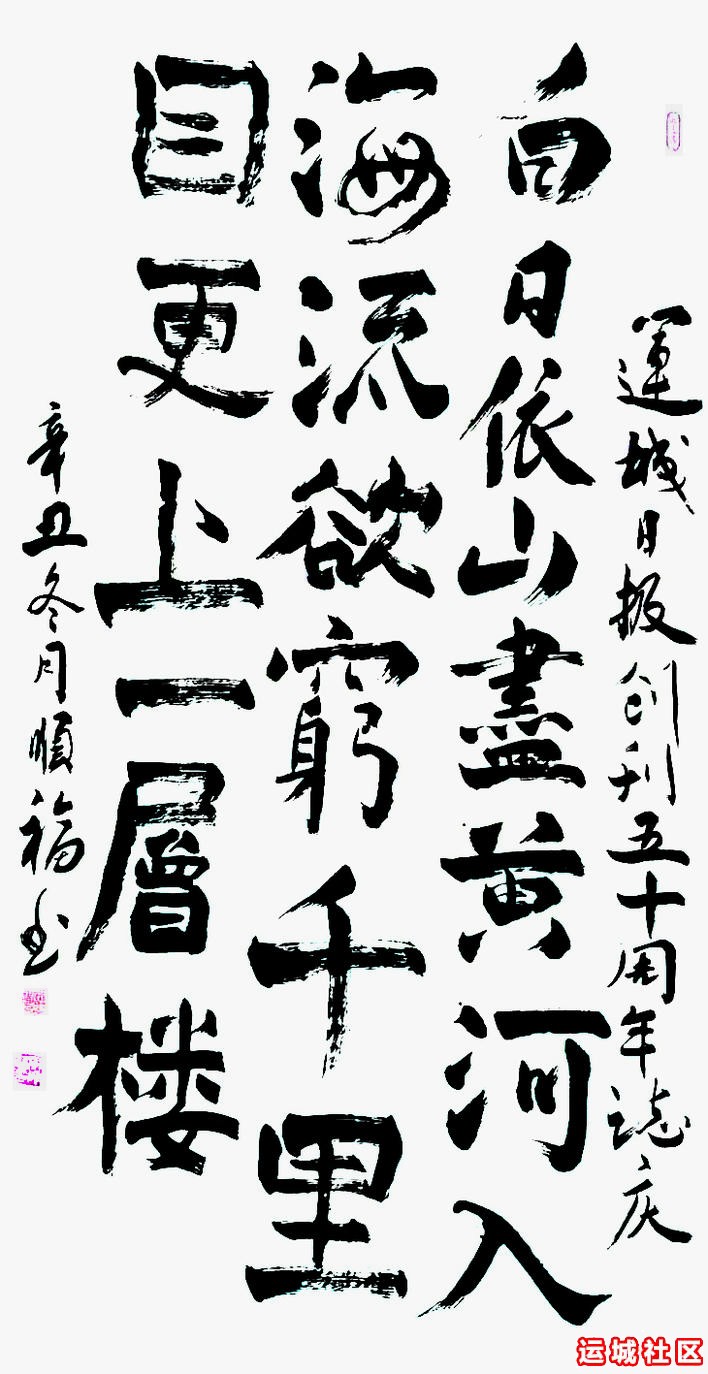 運城日报创刊五十周年誌庆
白日依山盡黄河入
海流欲窮千里
目更上一層楼
辛丑冬月順福书
运城社区